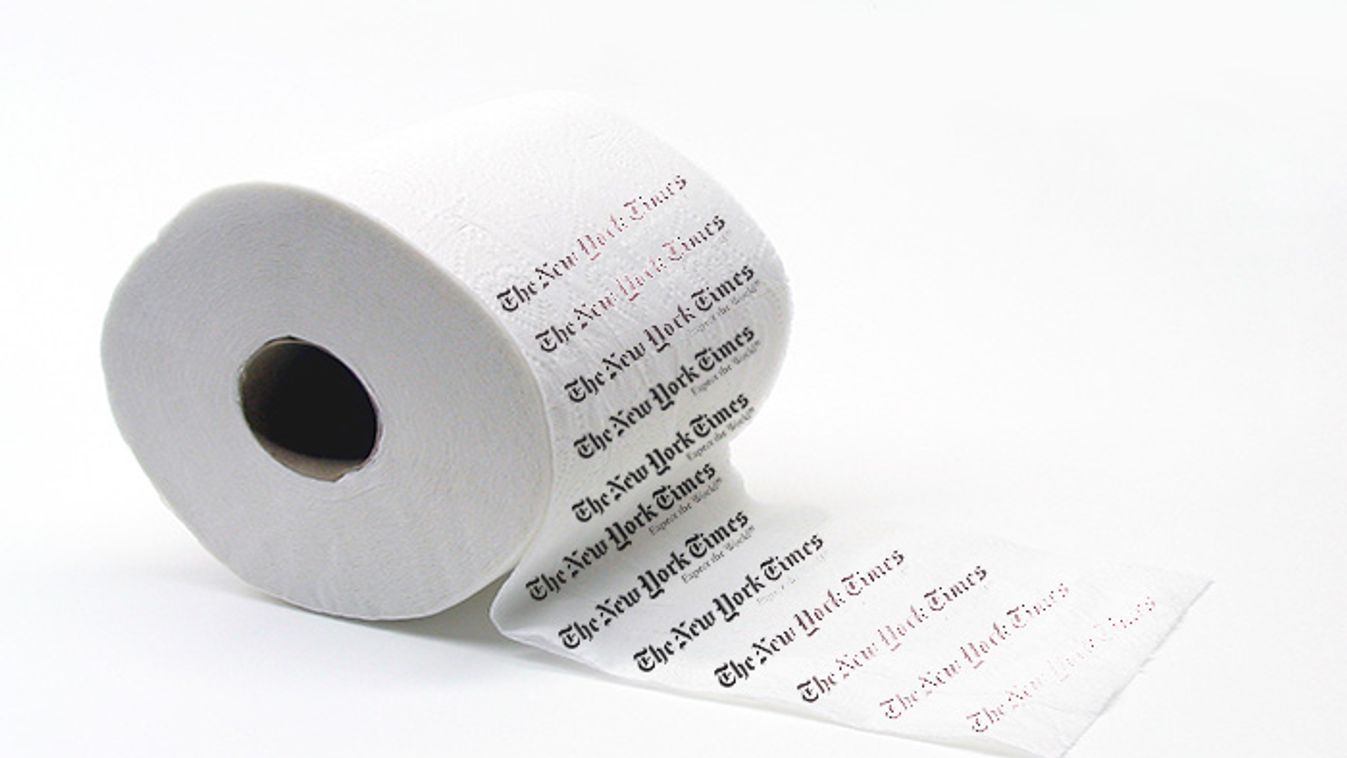 The New York Times
The New York Times
The New York Times
Expect the World®
The New York Times
Expect the World®
The New York Times
Expect the World®
The New York Times
Expect the World®
The New York Times
Expect the World®
The New York Times
The New York Times
The New York Times
The New York Times
The New York Times